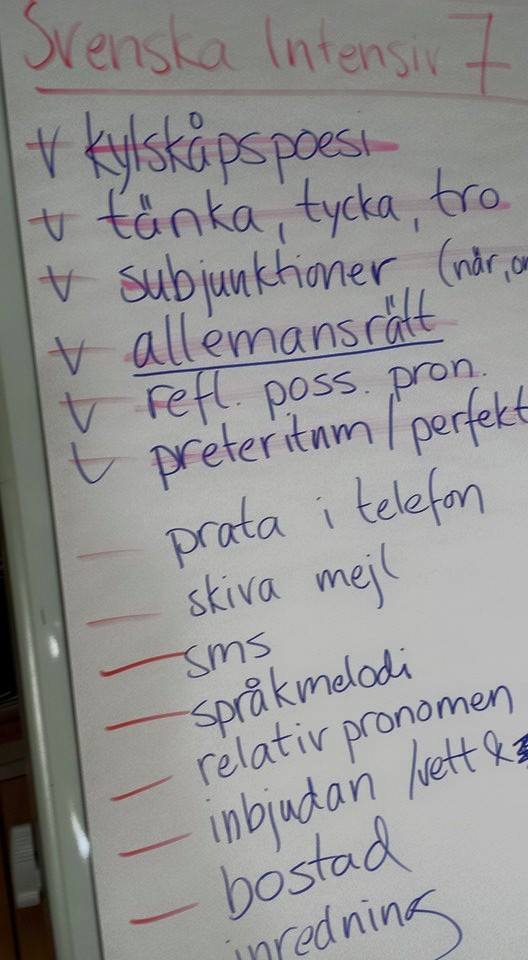 Svenska Intensiv 7
kylskåpspoesi
tänka, tycka, tro
subjunktioner (når, om
allemansrätt
refl. poss. pron.
preteritum / perfekt
prata i telefon
skiva mejl
sms
språkmelodi
relativ pronomen
inbjudan /vett &
bostad
inredning